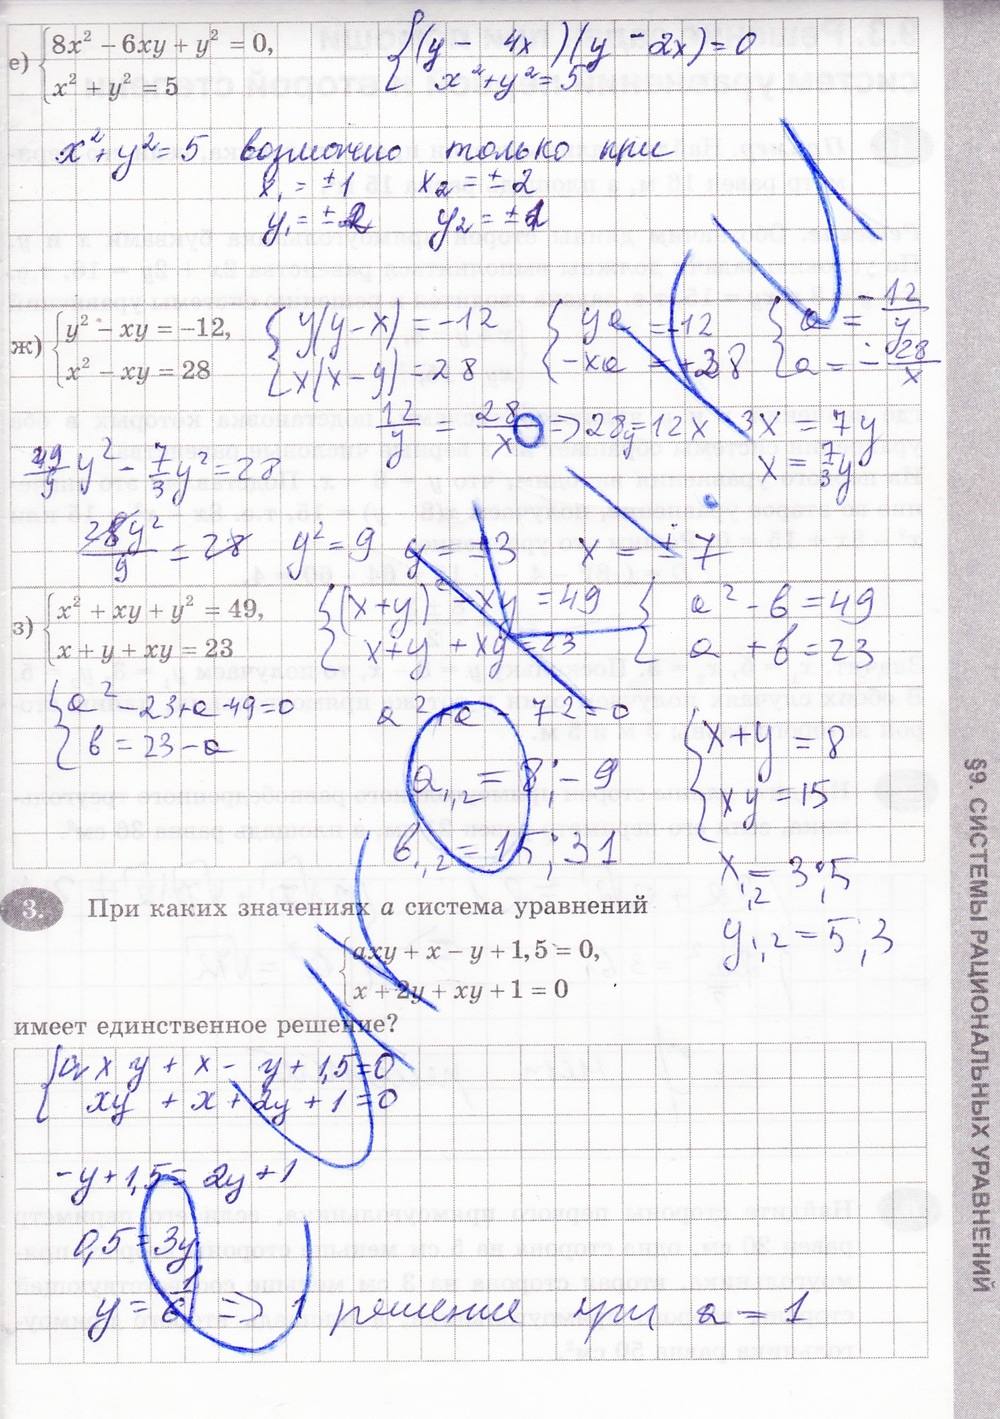 е) { 8x² − 6xy + y² = 0,
x² + y² = 5
{ (y − 4x)(y − 2x) = 0
x² + y² = 5
x² + y² = 5 возможно только при
x₁ = ±1 x₂ = ±2
y₁ = ±2 y₂ = ±1
ж) { y² − xy = −12,
x² − xy = 28
{ y(y − x) = −12
x(x − y) = 28
{ ya = −12
−xa = +28
{ a = −12/y
a = −28/x
12/y = 28/x => 28y = 12x 3x = 7y
x = 7/3 y
49/9 y² − 7/3 y² = 28
28y²/9 = 28 y² = 9 y = ±3 x = ±7
з) { x² + xy + y² = 49,
x + y + xy = 23
{ (x+y)² − xy = 49
x+y + xy = 23
{ a² − b = 49
a + b = 23
{ a² − 23 + a − 49 = 0
b = 23 − a
a² + a − 72 = 0
a₁,₂ = 8; −9
b₁,₂ = 15; 31
{ x + y = 8
xy = 15
x₁,₂ = 3; 5
y₁,₂ = 5, 3
3. При каких значениях a система уравнений
{ axy + x − y + 1,5 = 0,
x + 2y + xy + 1 = 0
имеет единственное решение?
{ axy + x − y + 1,5 = 0
xy + x + 2y + 1 = 0
−y + 1,5 = 2y + 1
0,5 = 3y
y = 1/6 => 1 решение при a = 1
§9. СИСТЕМЫ РАЦИОНАЛЬНЫХ УРАВНЕНИЙ